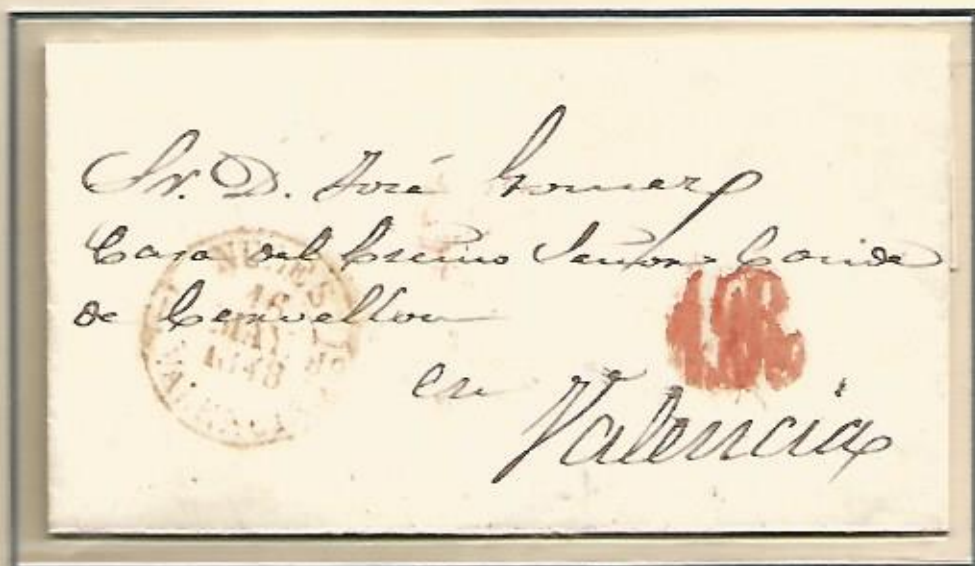 Sr. D. José Gomez
Casa del Exmo Señor Conde
de Cervellon
en
Valencia
NULES
16
MAY
1848
VALENCIA